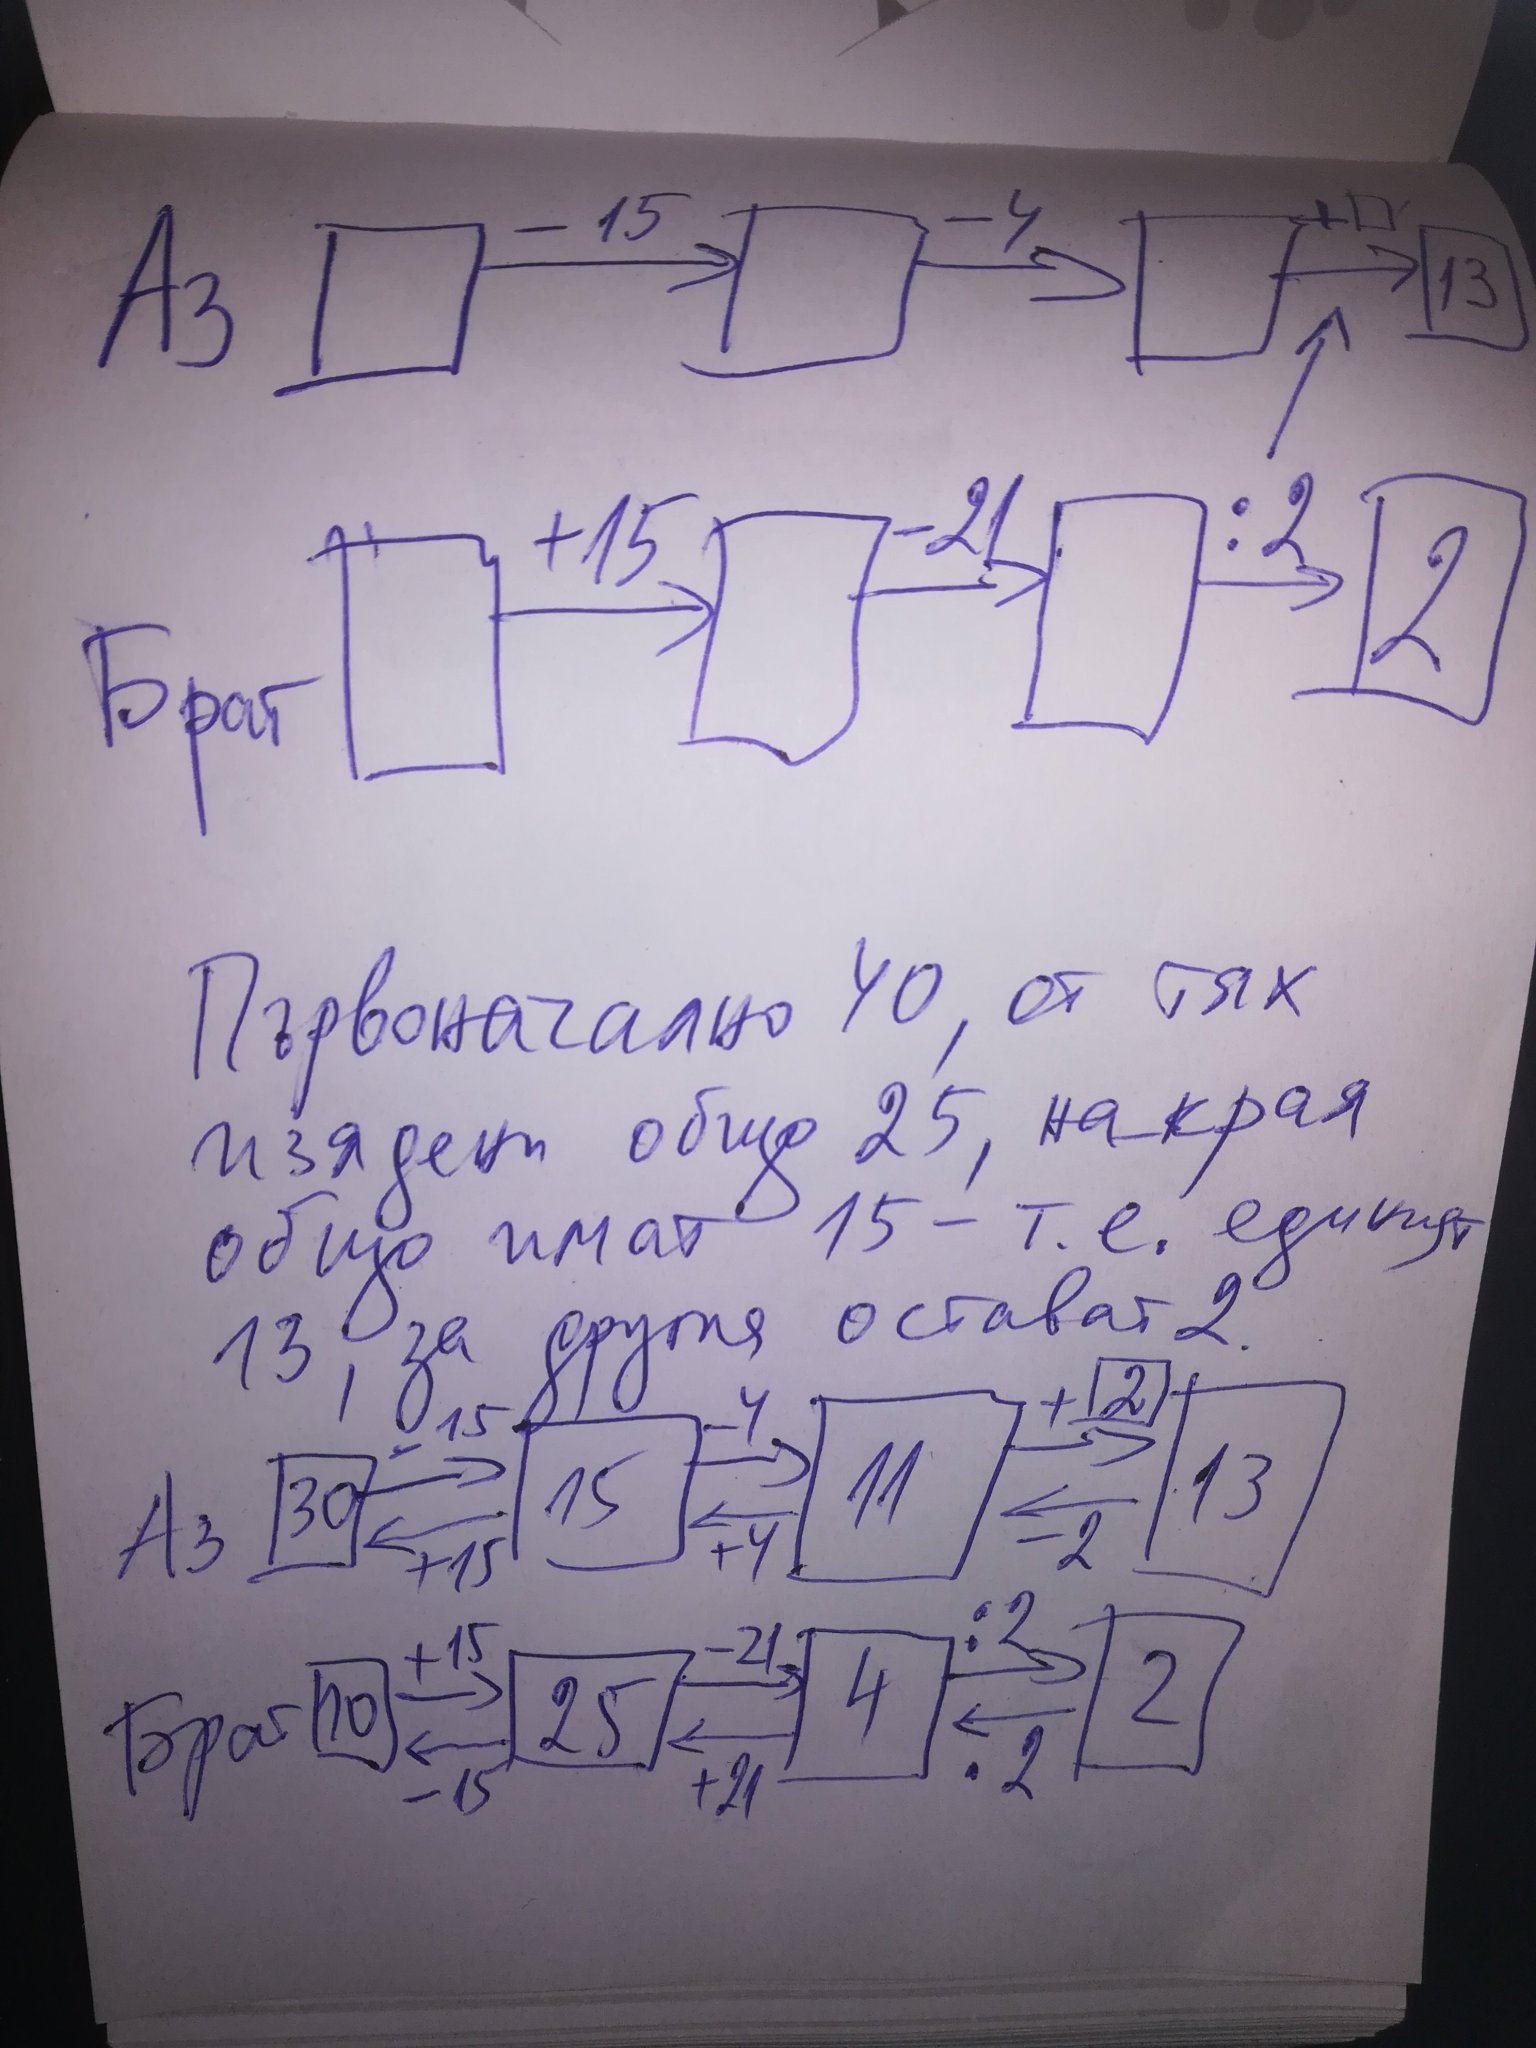 Аз - 15 - 4 + 13
Брат +15 -21 :2 2
Първоначално 40, от тях
изядени общо 25, накрая
общо имат 15 - т.е. единият
13, за другия остават 2.
- 15 - 4 + 2
Аз 30 15 11 13
+15 +4 -2
+15 -21 :2
Брат 10 25 4 2
-15 +21 .2